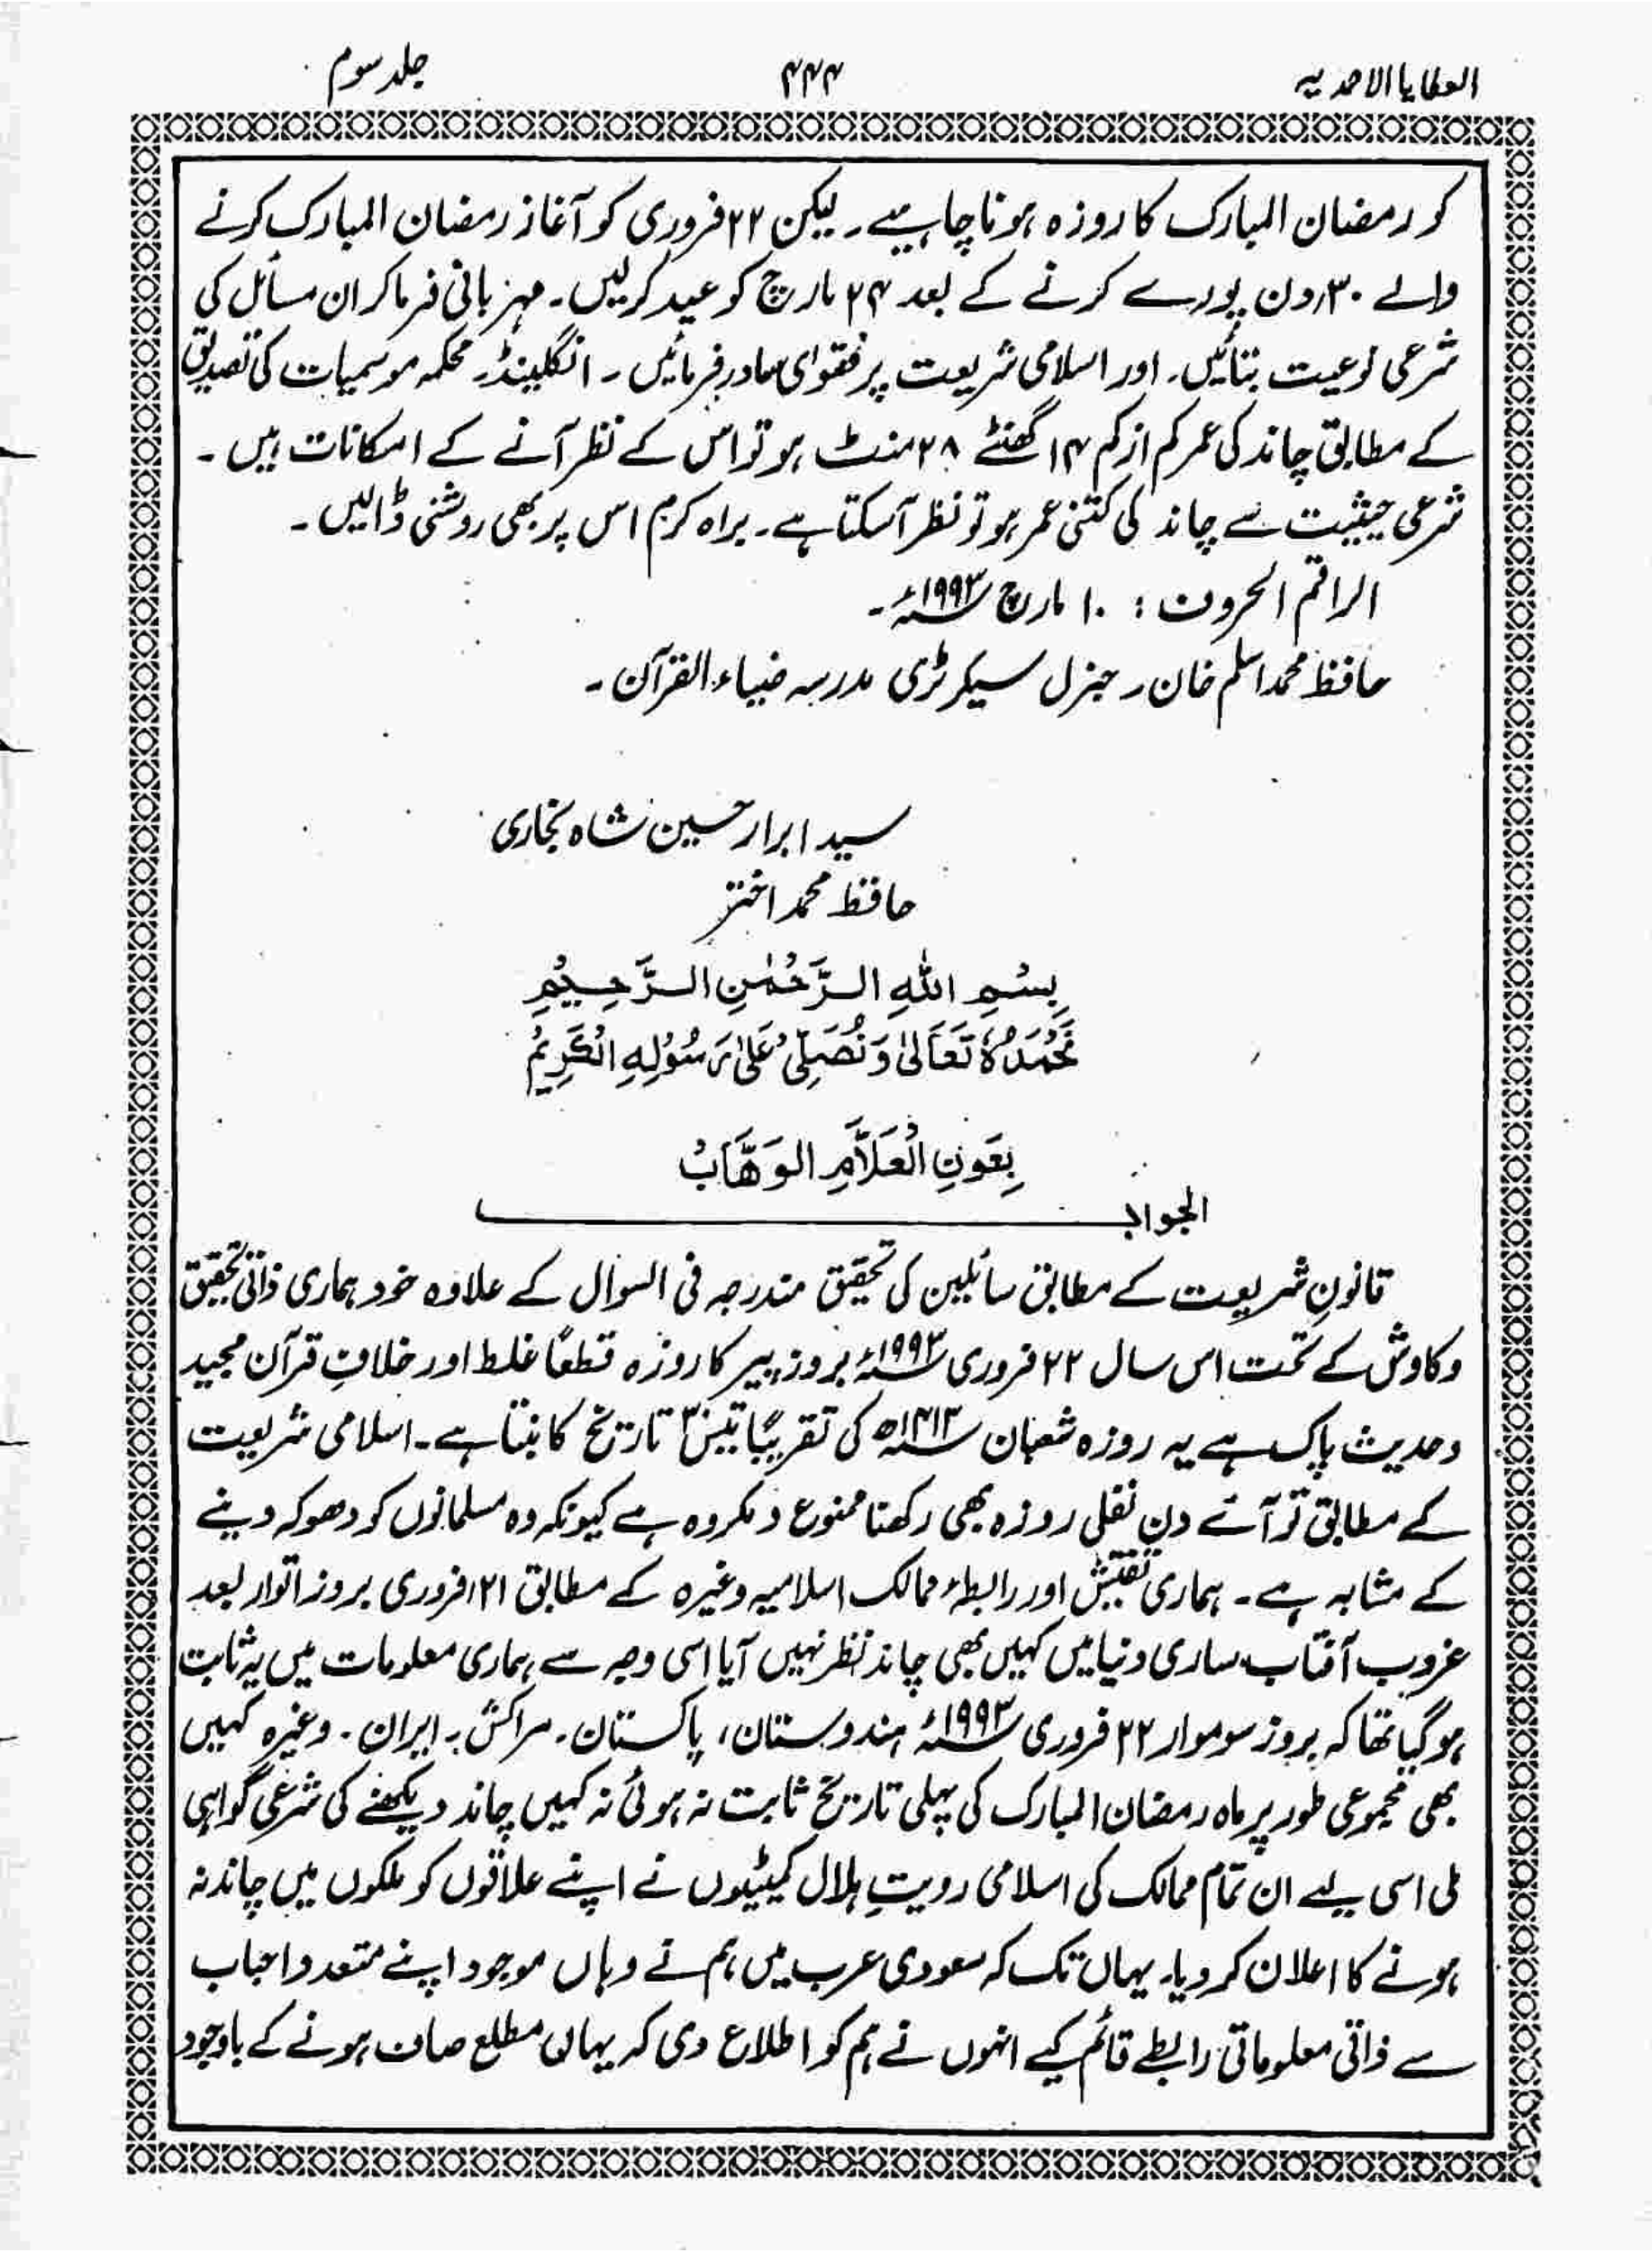 العطایا الاحمدیہ ۴۴۴ جلد سوم
کو رمضان المبارک کا روزہ ہونا چاہیے۔ لیکن ۲۲ فروری کو آغاز رمضان المبارک کرنے
والے ۳۰ دن پورے کرنے کے بعد ۲۴ مارچ کو عید کرلیں۔ مہربانی فرما کر ان مسائل کی
شرعی نوعیت بتائیں۔ اور اسلامی شریعت پر فتوای صادر فرمائیں۔ انگلینڈ۔ محکمہ موسمیات کی تصدیق
کے مطابق چاند کی عمر کم از کم ۱۴ گھنٹے ۲۸ منٹ ہو تو اس کے نظر آنے کے امکانات ہیں۔
شرعی حیثیت سے چاند کی کتنی عمر ہو تو نظر آسکتا ہے۔ براہ کرم اس پر بھی روشنی ڈالیں۔
الراقم الحروف : ۱۰ مارچ ۱۹۹۳ء۔
حافظ محمد اسلم خان۔ جنرل سیکرٹری مدرسہ ضیاء القرآن۔
سید ابرار حسین شاہ بخاری
حافظ محمد اختر
بِسْمِ اللهِ الرَّحْمٰنِ الرَّحِيْمِ
نَحْمَدُهٗ تَعَالٰى وَنُصَلِّىْ عَلٰى رَسُوْلِهِ الْكَرِيْمُ
بِعَونِ الْعَلَّامِ الوَهَّابُ
الجواب
قانونِ شریعت کے مطابق سائلین کی تحقیق مندرجہ فی السوال کے علاوہ خود ہماری ذاتی تحقیق
و کاوش کے تحت اس سال ۲۲ فروری ۱۹۹۳ء بروز پیر کا روزہ قطعًا غلط اور خلافِ قرآن مجید
و حدیث پاک ہے یہ روزہ شعبان ۱۴۱۳ھ کی تقریبًا تیس۳۰ تاریخ کا بنتا ہے۔ اسلامی شریعت
کے مطابق تو آئے دن نفلی روزہ بھی رکھنا ممنوع و مکروہ ہے کیونکہ وہ مسلمانوں کو دھوکہ دینے
کے مشابہ ہے۔ ہماری تفتیش اور رابطۂ ممالک اسلامیہ وغیرہ کے مطابق ۲۱ فروری بروز اتوار بعد
غروب آفتاب ساری دنیا میں کہیں بھی چاند نظر نہیں آیا اسی وجہ سے ہماری معلومات میں یہ ثابت
ہو گیا تھا کہ بروز سوموار ۲۲ فروری ۱۹۹۳ء ہندوستان، پاکستان۔ مراکش۔ ایران۔ وغیرہ کہیں
بھی مجموعی طور پر ماہ رمضان المبارک کی پہلی تاریخ ثابت نہ ہوئی نہ کہیں چاند دیکھنے کی شرعی گواہی
ملی اسی لیے ان تمام ممالک کی اسلامی رویتِ ہلال کمیٹیوں نے اپنے علاقوں کو ملکوں میں چاند نہ
ہونے کا اعلان کر دیا۔ یہاں تک کہ سعودی عرب میں ہم نے وہاں موجود اپنے متعدد احباب
سے ذاتی معلوماتی رابطے قائم کیے انہوں نے ہم کو اطلاع دی کہ یہاں مطلع صاف ہونے کے باوجود